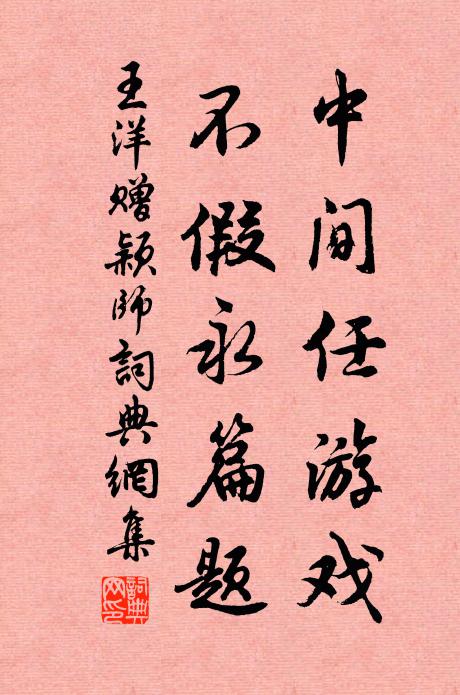 中间任游戏
不假永篇题
王洋赠颖师詞典網集
詞典网印